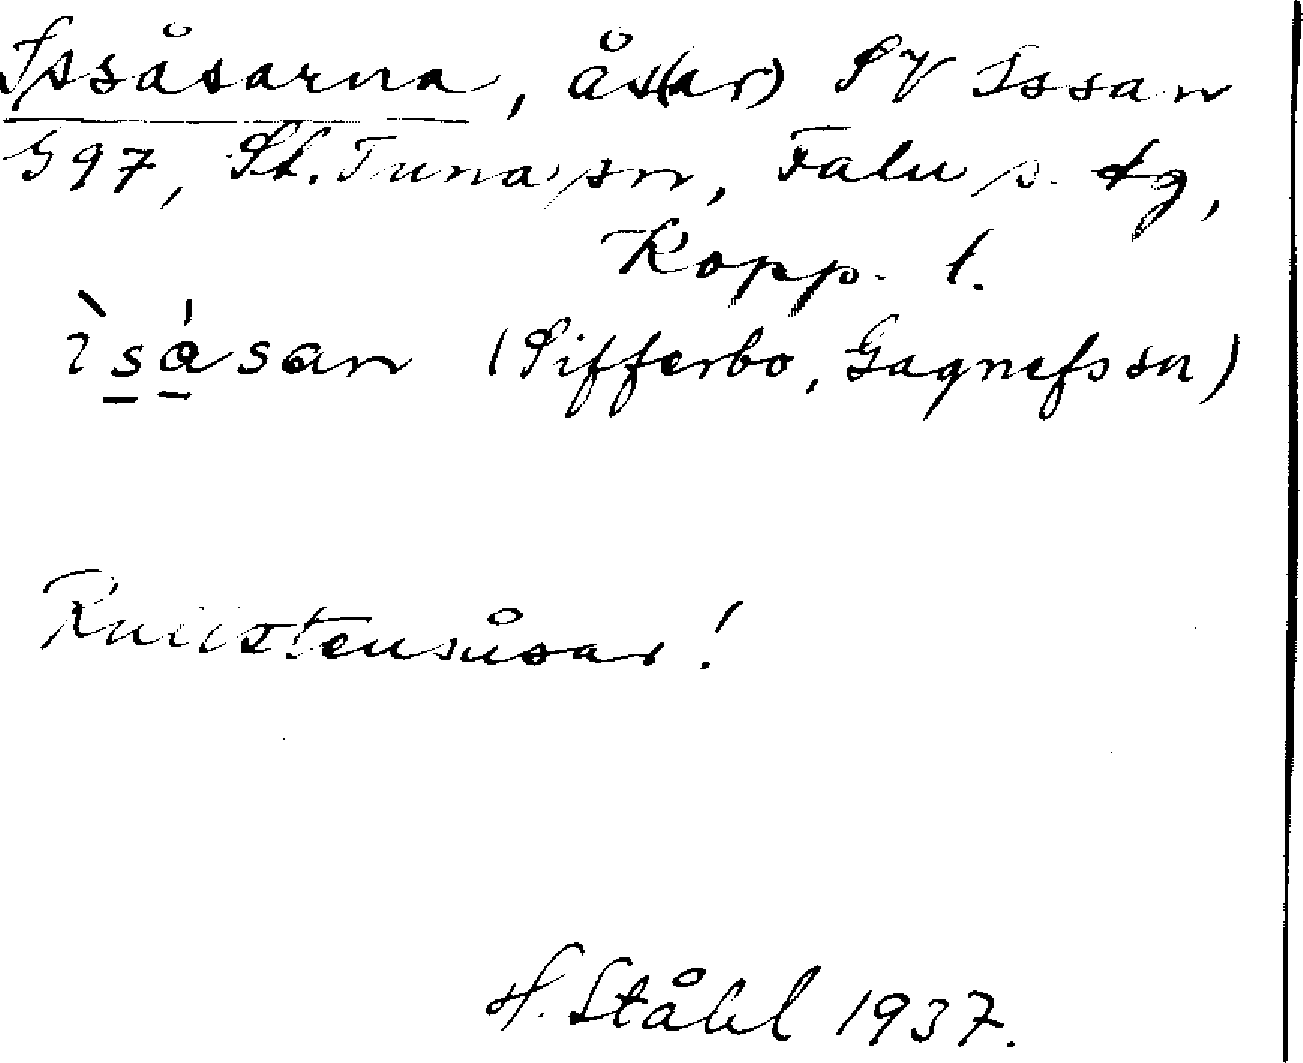 Issåsarna, ås(ar) SV Issan
G97, St. Tuna sn, Falu s. tg,
Kopp. l.
ìsásan (Sifferbo, Gagnefs sn)
Rullstensåsar!
H. Ståhl 1937.